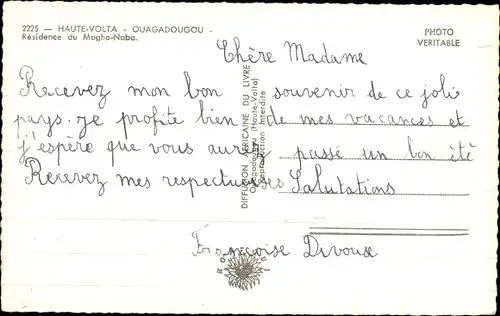 2225 — HAUTE-VOLTA - OUAGADOUGOU -
Résidence du Mogho-Naba.
PHOTO
VERITABLE
Chère Madame
Recevez mon bon souvenir de ce joli
pays. je profite bien de mes vacances et
j'espère que vous aurez passé un bon été
Recevez mes respectueuses Salutations
Françoise Divoux
DIFFUSION AFRICAINE DU LIVRE
Ouagadougou (Haute-Volta)
Reproduction Interdite